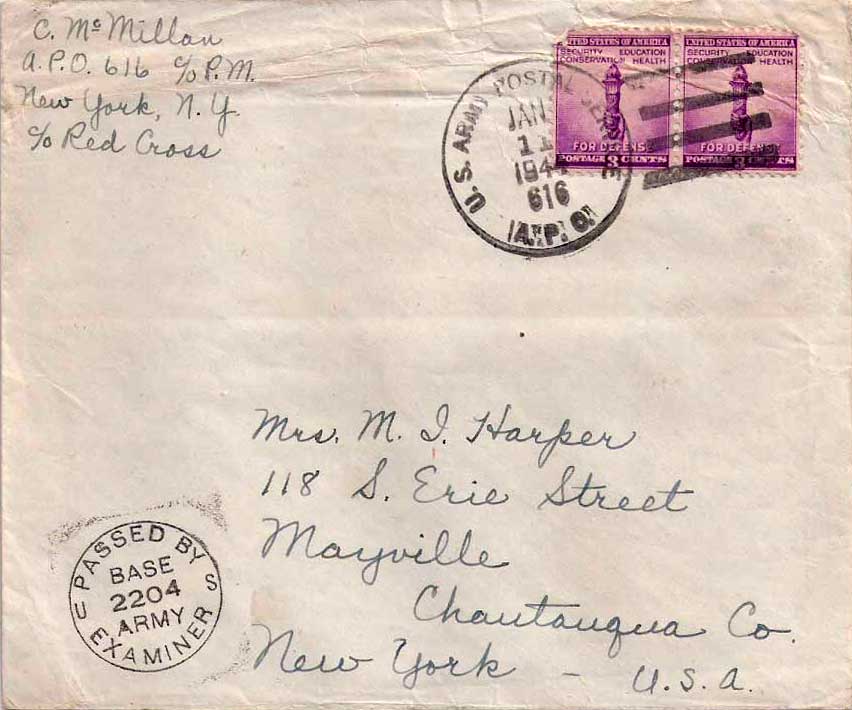 C. McMillan
A.P.O. 616 c/o P.M.
New York, N.Y.
c/o Red Cross
U.S. ARMY POSTAL SERVICE
JAN
11
194
616
A.P.O.
UNITED STATES OF AMERICA
SECURITY EDUCATION
CONSERVATION HEALTH
FOR DEFENSE
POSTAGE 3 CENTS
UNITED STATES OF AMERICA
SECURITY EDUCATION
CONSERVATION HEALTH
FOR DEFENSE
POSTAGE 3 CENTS
Mrs. M. I. Harper
118 S. Erie Street
Mayville
Chautauqua Co.
New York - U.S.A.
PASSED BY
BASE
2204
ARMY
EXAMINER
U S